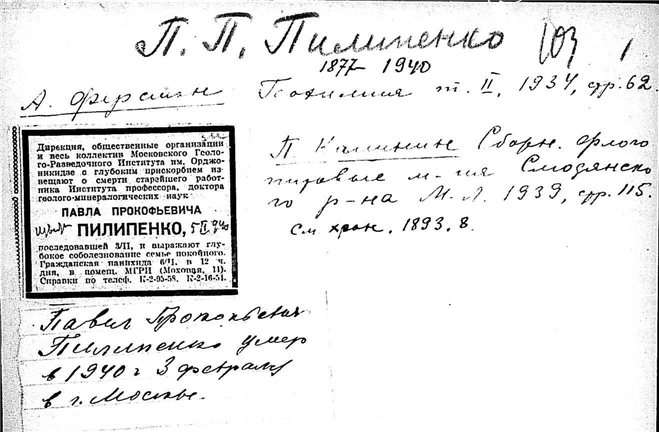 П. П. Пилипенко
1877-1940
103 1
А. Ферсман
Геохимия т. II, 1934, стр. 62.
Дирекция, общественные организации
и весь коллектив Московского Геоло-
го-Разведочного Института им. Орджо-
никидзе с глубоким прискорбием из-
вещают о смерти старейшего работ-
ника Института профессора, доктора
геолого-минералогических наук
ПАВЛА ПРОКОФЬЕВИЧА
ПИЛИПЕНКО,
последовавшей 3/II, и выражают глу-
бокое соболезнование семье покойного.
Гражданская панихида 6/II, в 12 ч.
дня, в помещ. МГРИ (Моховая, 11).
Справки по телеф. К-2-95-58, К-2-16-51.
П. Калинин Сборн. флого
питовые м-ния Слюдянско
го р-на М.Л. 1939, стр. 115.
см хрон. 1893.8.
Павел Прокопьевич
Пилипенко умер
в 1940 г 3 февраля
в г. Москве.